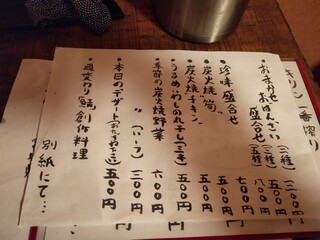 キリン一番搾り
・おまかせおばんざい（二種）三〇〇円
盛合せ（三種）五〇〇円
（五種）八〇〇円
・珍味盛合せ 七〇〇円
・炭火焼筍 五〇〇円
・炭火焼チキン 五〇〇円
・うるめいわしの丸干し（二き） 五〇〇円
・季節の炭火焼野菜 六〇〇円
〃（ハーフ）三〇〇円
・本日のデザート（おたずね下さい）五〇〇円
・週変り鯖創作料理
別紙にて…